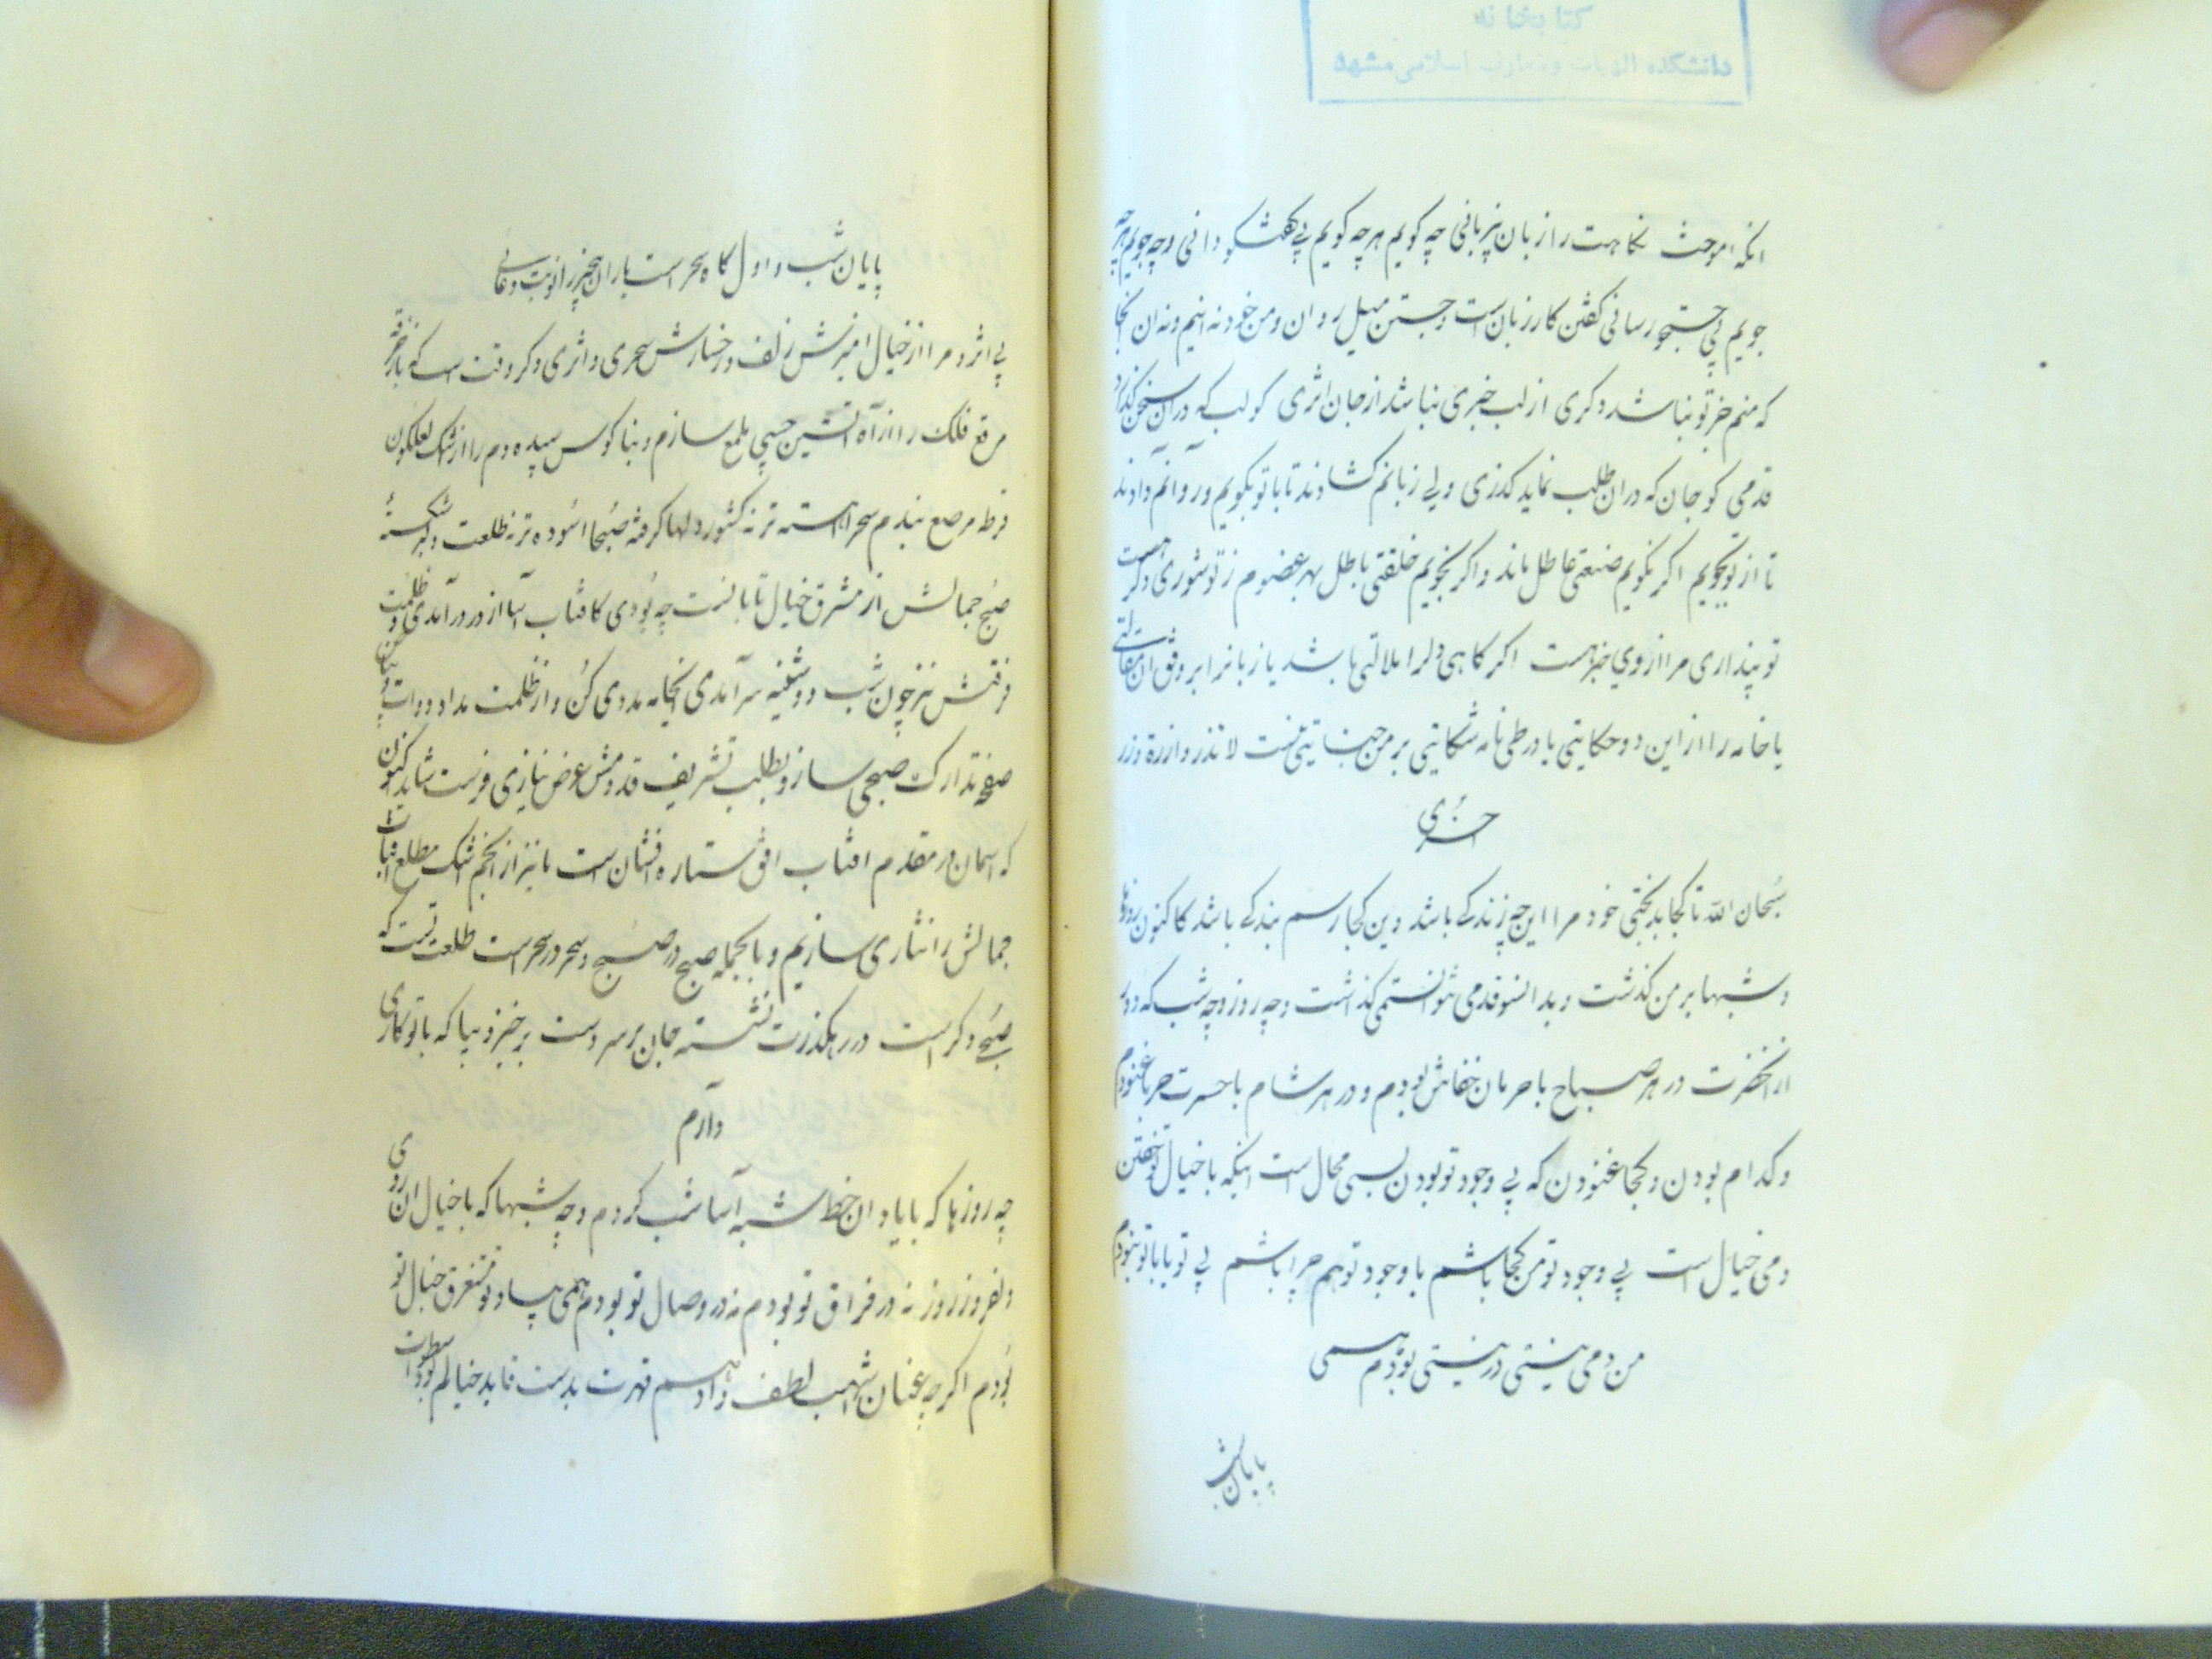 کتابخانه
دانشکده الهیات و معارف اسلامی مشهد
انکه امرحث نکاهت را زبان بیزبانی چه کویم هرچه کویم بی کفتکو دانی وچه جویم هرچه
جویم بی جستجو رسانی کفتن کار زبان است وجستن میل روان ومن خود نه اینم ونه ان
که منم جز تو نباشد دکری از لب خبری نباشد از جان اثری کو لب که دران سخن کذارد
قدمی کو جان که دران طلب نماید کذری ولی زبانم کشادند تا با تو بکویم وروانم دادند
تا از تو بجویم اکر نکویم صنعتی عاطل ماند واکر نجویم خلقتی باطل بهر عضوم ز تو شوری دکر هست
تو پنداری مرا از وی خبر هست اکر کاهی دلرا ملالتی باشد یا زبانرا بر وفق ان مقالتی
یا خامه را از این دو حکایتی یا در طی نامه شکایتی بر من جنایتی نیست لا تذر وازرة وزر
اخری
سبحان الله تا کجا بدبختی خود مرا این چه زندکی باشد وین کجا رسم بندکی باشد کاکنون روزها
وشبها بر من کذشت وبدانسو قدمی نتوانستمی کذاشت وچه روز وچه شب که دور
از انحضرت در هر صباح با حرمان خفاش بودم و در هر شام با حسرت حربا غنودم
وکدام بودن وکجا غنودن که بی وجود تو بودن بسی محال است اینکه با خیال تو خفتن
دمی خیال است بی وجود تو من کجا باشم با وجود تو هم چرا باشم بی تو یا با تو نبودم
من دمی نیستی در نیستی بودم همی
پایان شب
پایان شب و اول کاه سحر است یاران همه خیزید نوبت دعای
بی اثر و مرا از خیال امیزش زلف ورخسارش سحری واثری دکر وقت است که باز
مرقع فلک را از آه آتشین جیبی ملمع سازم وبناکوس سپیده دم را از اشک لعلکون
قرط مرصع بندم سحرا اهسته تر نه کشور دلها کرفته صبحا اسوده تر نه ظلعت دلبر شکسته
صبح جمالش از مشرق خیال تابانست چه بودی کافتاب آسا از در درآمدی وظلمت
فرقتش نیز چون شب دوشینه سرآمدی ایخامه مددی کن واز ظلمت مداد دوات
صفحه تدارک صبحی ساز وبطلب تشریف قدومش عرض نیازی فرست شاید کنون
که اسمان در مقدم افتاب افق ستاره افشان است ما نیز از انجم اشک مطلع افتاب
جمالش را نثاری سازیم وبالجمله صبح در صبح وسحر در سحر است طلعت تست که
صبح دکر است در رهکذرت نشسته جان بر سر دست برخیز وبیا که با تو کاری
دارم
چه روزها که با یاد ان خط شبه آسا شب کردم وچه شبها که با خیال ان روی
دلفروز روز نه در فراق تو بودم نه در وصال تو بودم همی بیاد تو مستغرق خیال تو
بودم اکرچه عنان اشهب لطف وادهم قهرت بدست قاید خیالم بود